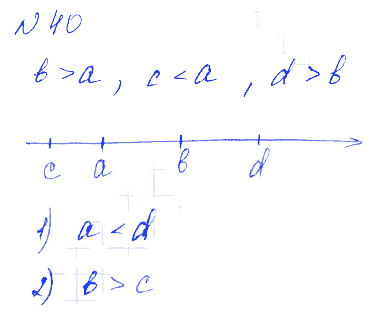 № 40
в > а, с < а, d > в
с а в d
1) а < d
2) в > с